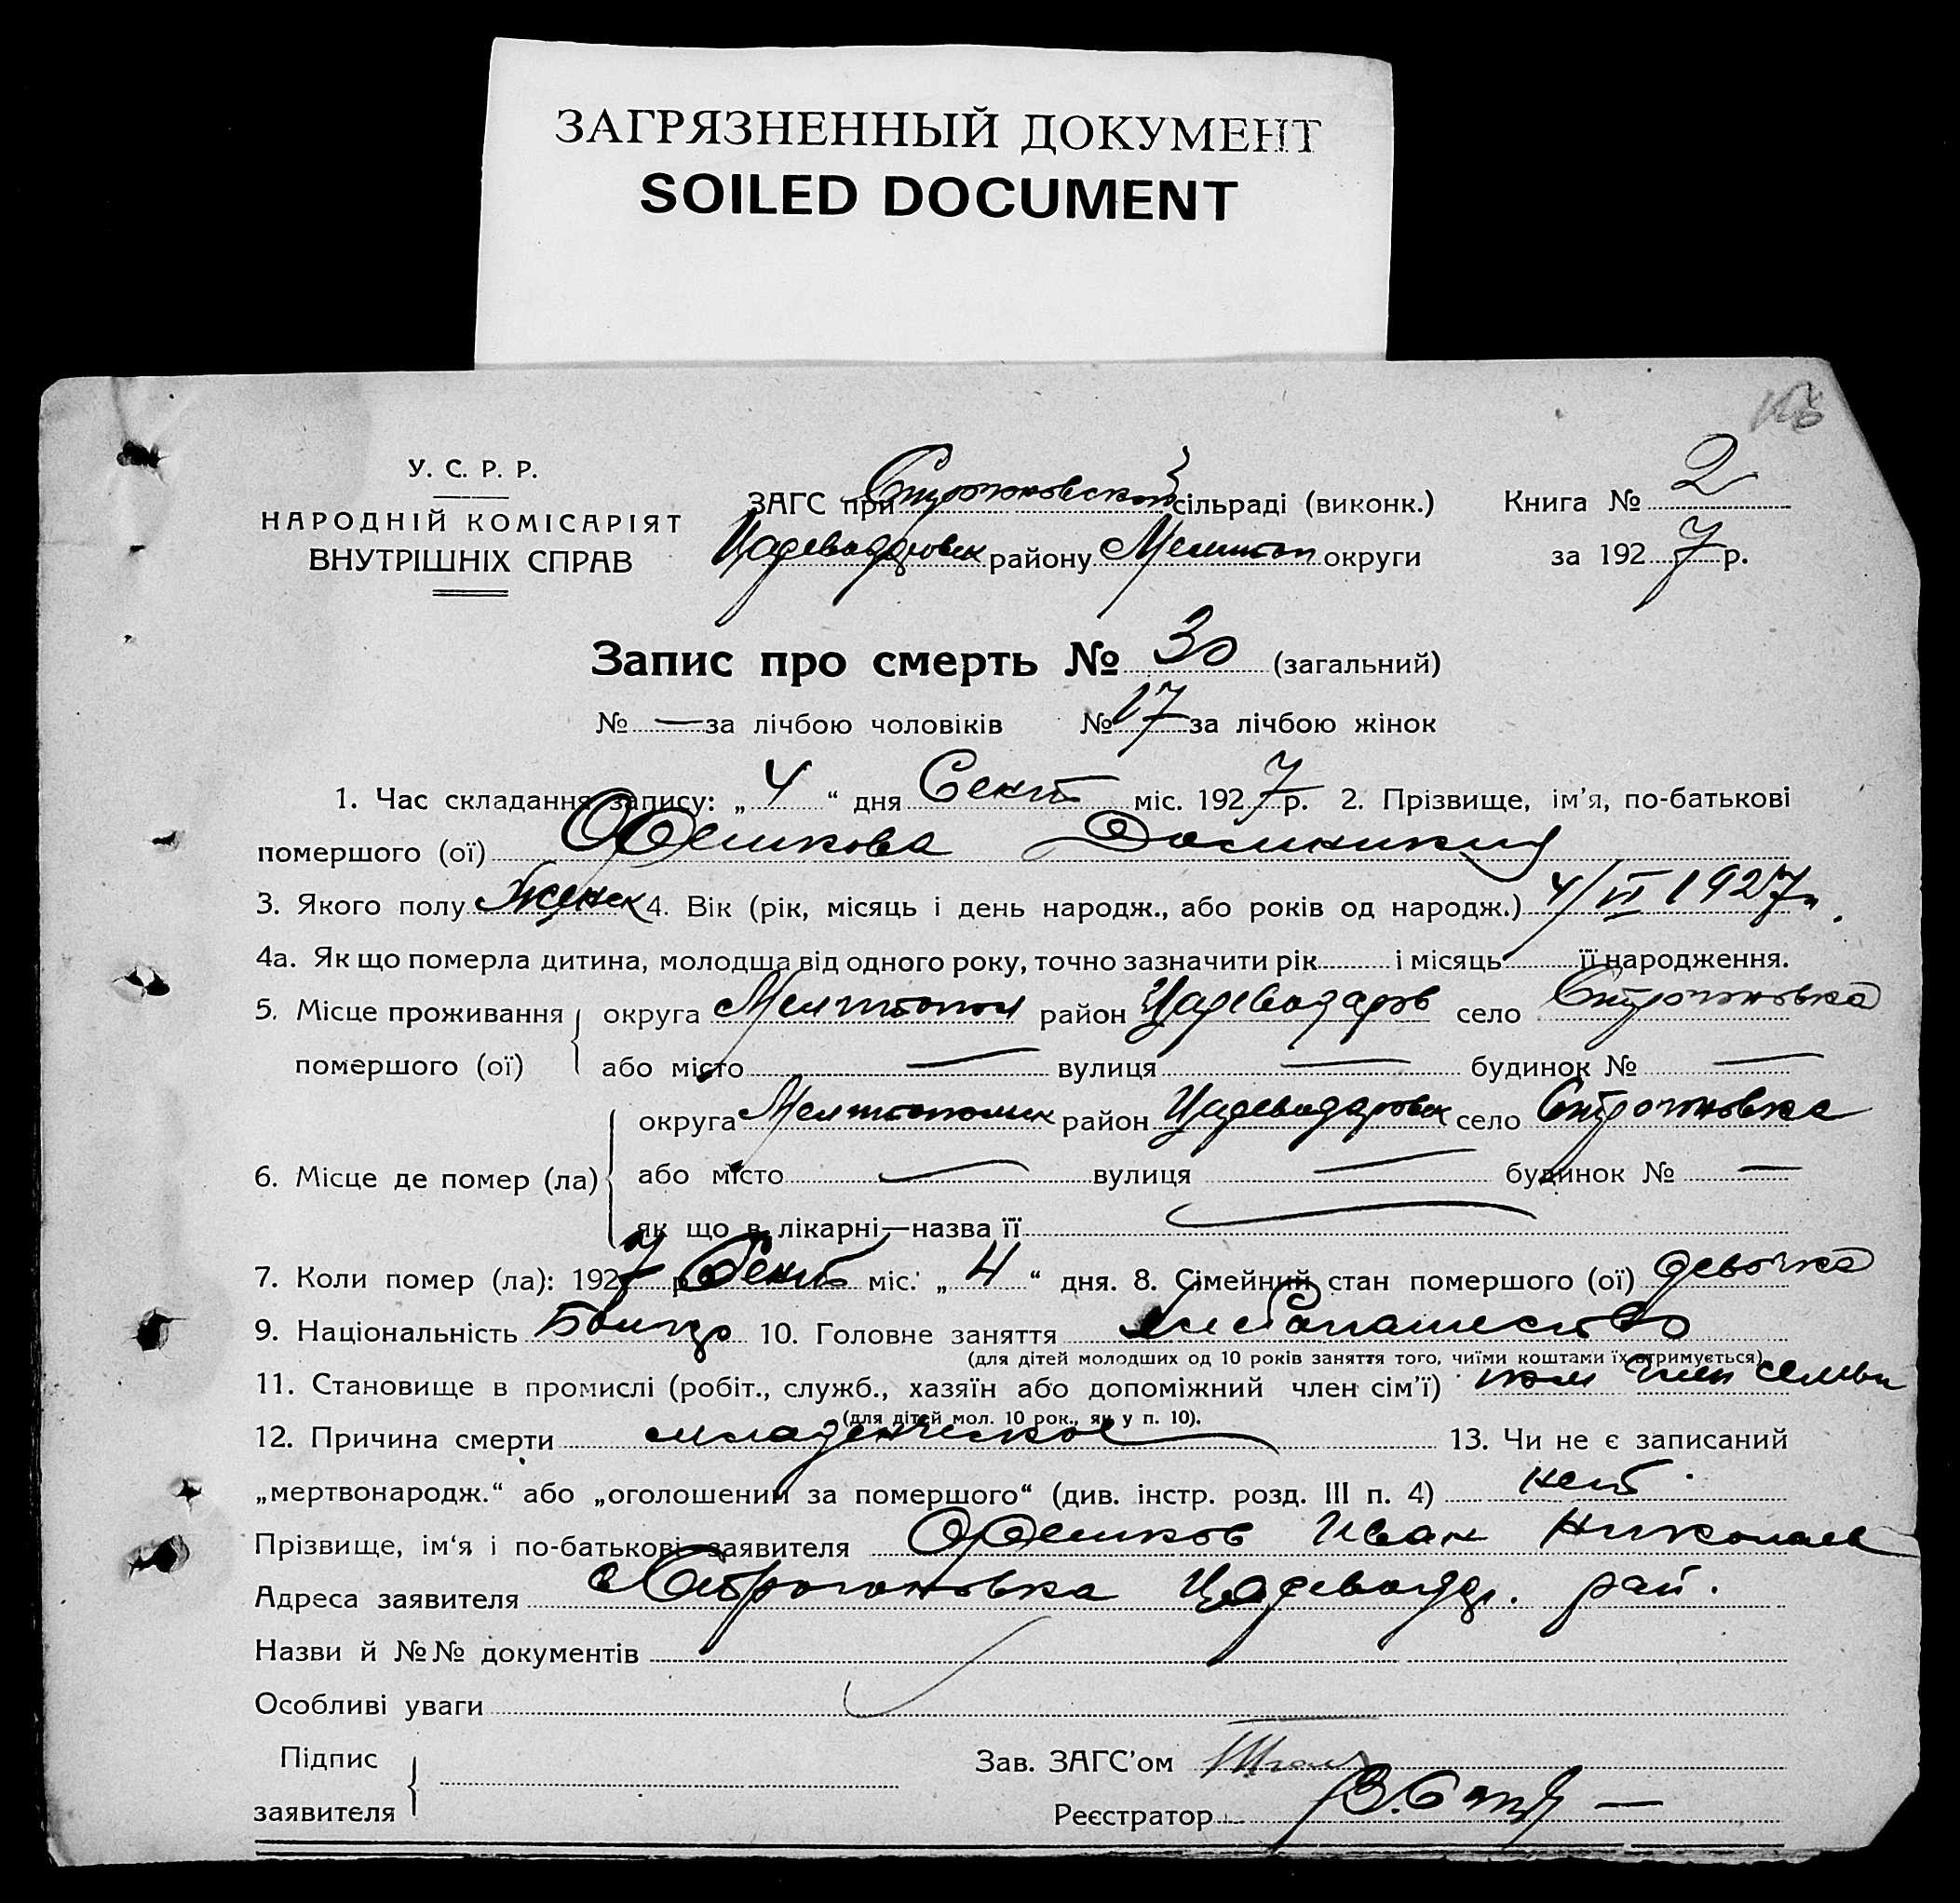 ЗАГРЯЗНЕННЫЙ ДОКУМЕНТ
SOILED DOCUMENT
У. С. Р. Р.
НАРОДНІЙ КОМІСАРІЯТ
ВНУТРІШНІХ СПРАВ
ЗАГС при Строгоновской сільраді (виконк.)
Цареводаровск району Мелитоп округи
Книга № 2
за 1927 р.
Запис про смерть № 30 (загальний)
№ — за лічбою чоловіків № 17 за лічбою жінок
1. Час складання запису: „ 4 “ дня Сент міс. 1927 р. 2. Прізвище, ім'я, по-батькові
помершого (ої)
3. Якого полу Женск 4. Вік (рік, місяць і день народж., або років од народж.) 4/VI 1927 г.
4а. Як що померла дитина, молодша від одного року, точно зазначити рік і місяць її народження.
5. Місце проживання помершого (ої) округа Мелитопол район Цареводаров село Строгоновка
або місто — вулиця — будинок № —
6. Місце де помер (ла) округа район Цареводаровск село Строгоновка
або місто — вулиця — будинок № —
як що в лікарні—назва її —
7. Коли помер (ла): 1927 р Сент міс. „ 4 “ дня. 8. Сімейний стан помершого (ої) девочка
9. Національність 10. Головне заняття хлебопашество
(для дітей молодших од 10 років заняття того, чиїми коштами їх втримується)
11. Становище в промислі (робіт., служб., хазяїн або допоміжний член сім'ї) пом член семьи
(для дітей мол. 10 рок., як у п. 10).
12. Причина смерти младенческое 13. Чи не є записаний
„мертвонародж.“ або „оголошеним за помершого“ (див. інстр. розд. III п. 4) нет
Прізвище, ім'я і по-батькові заявителя Иван Николаев
Адреса заявителя с Строгоновка Цареводар. рай.
Назви й №№ документів
Особливі уваги
Підпис
заявителя
Зав. ЗАГС'ом
Реєстратор